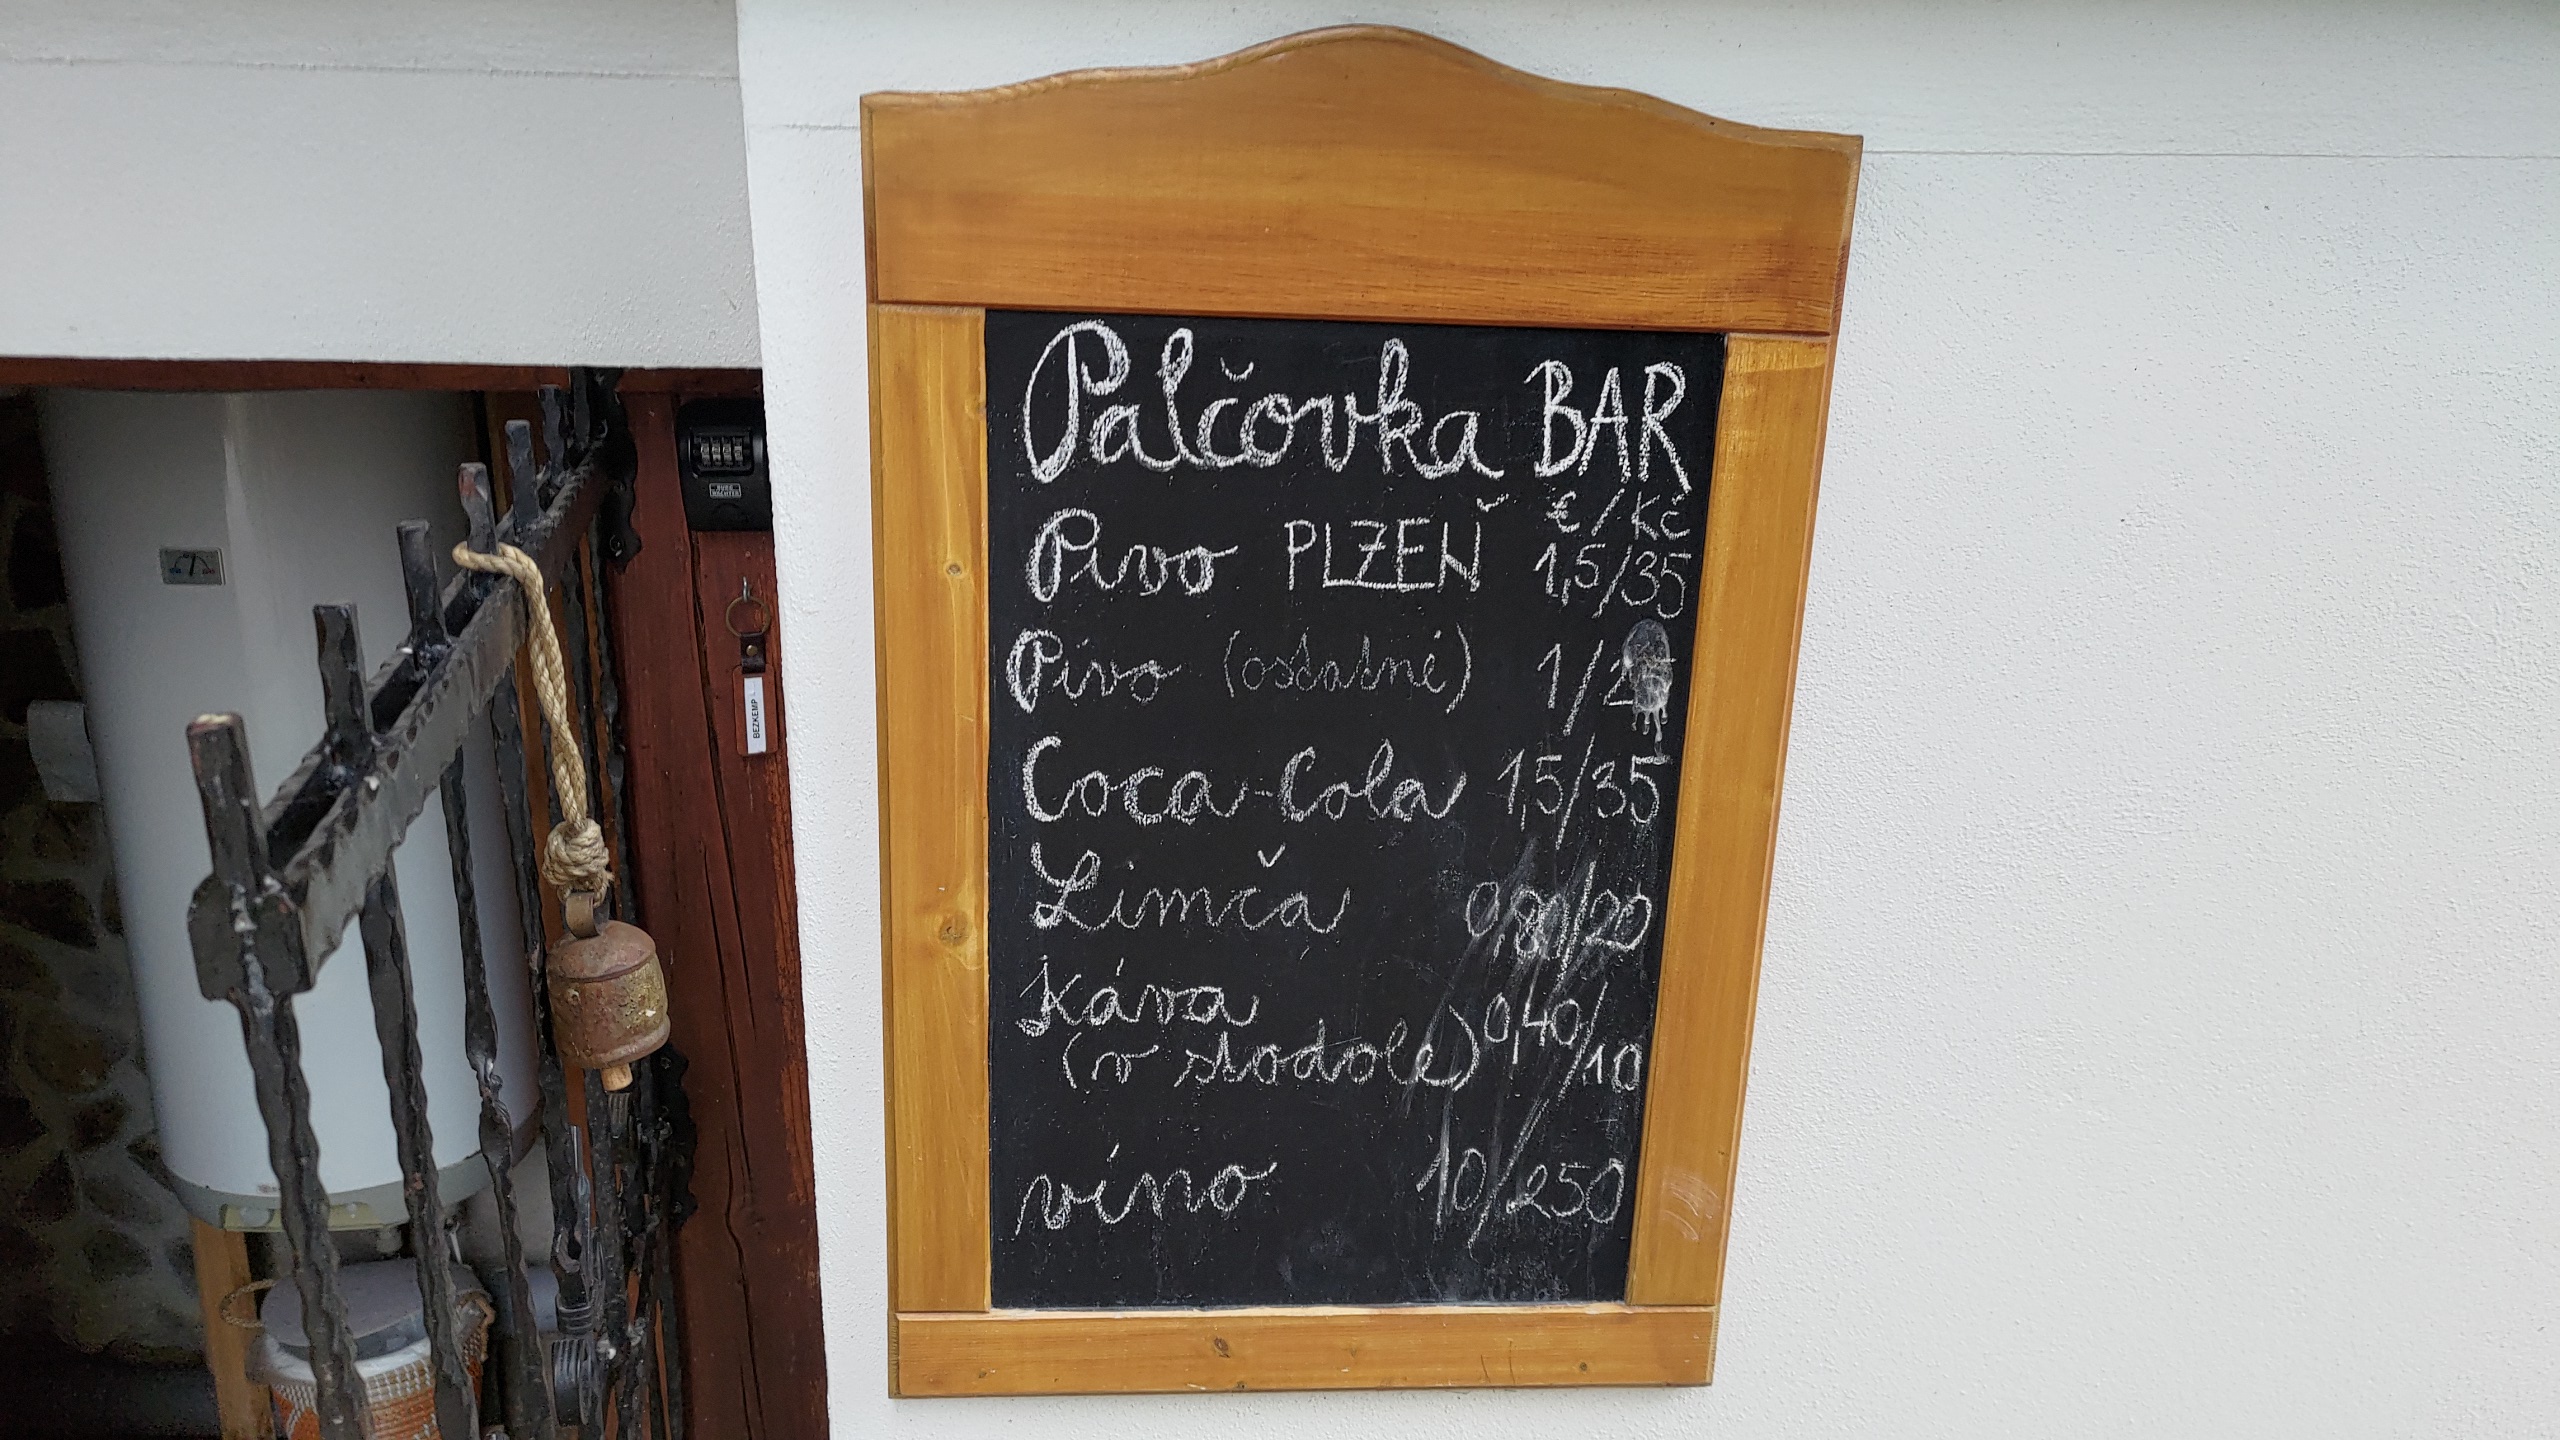 Palčovka BAR
€/Kč
Pivo PLZEŇ 1,5/35
Pivo (ostatné) 1/25
Coca-Cola 1,5/35
Limča 0,80/20
Káva 0,40/10
(v stodole)
víno 10/250
BEZKEMP
BURG
WÄCHTER